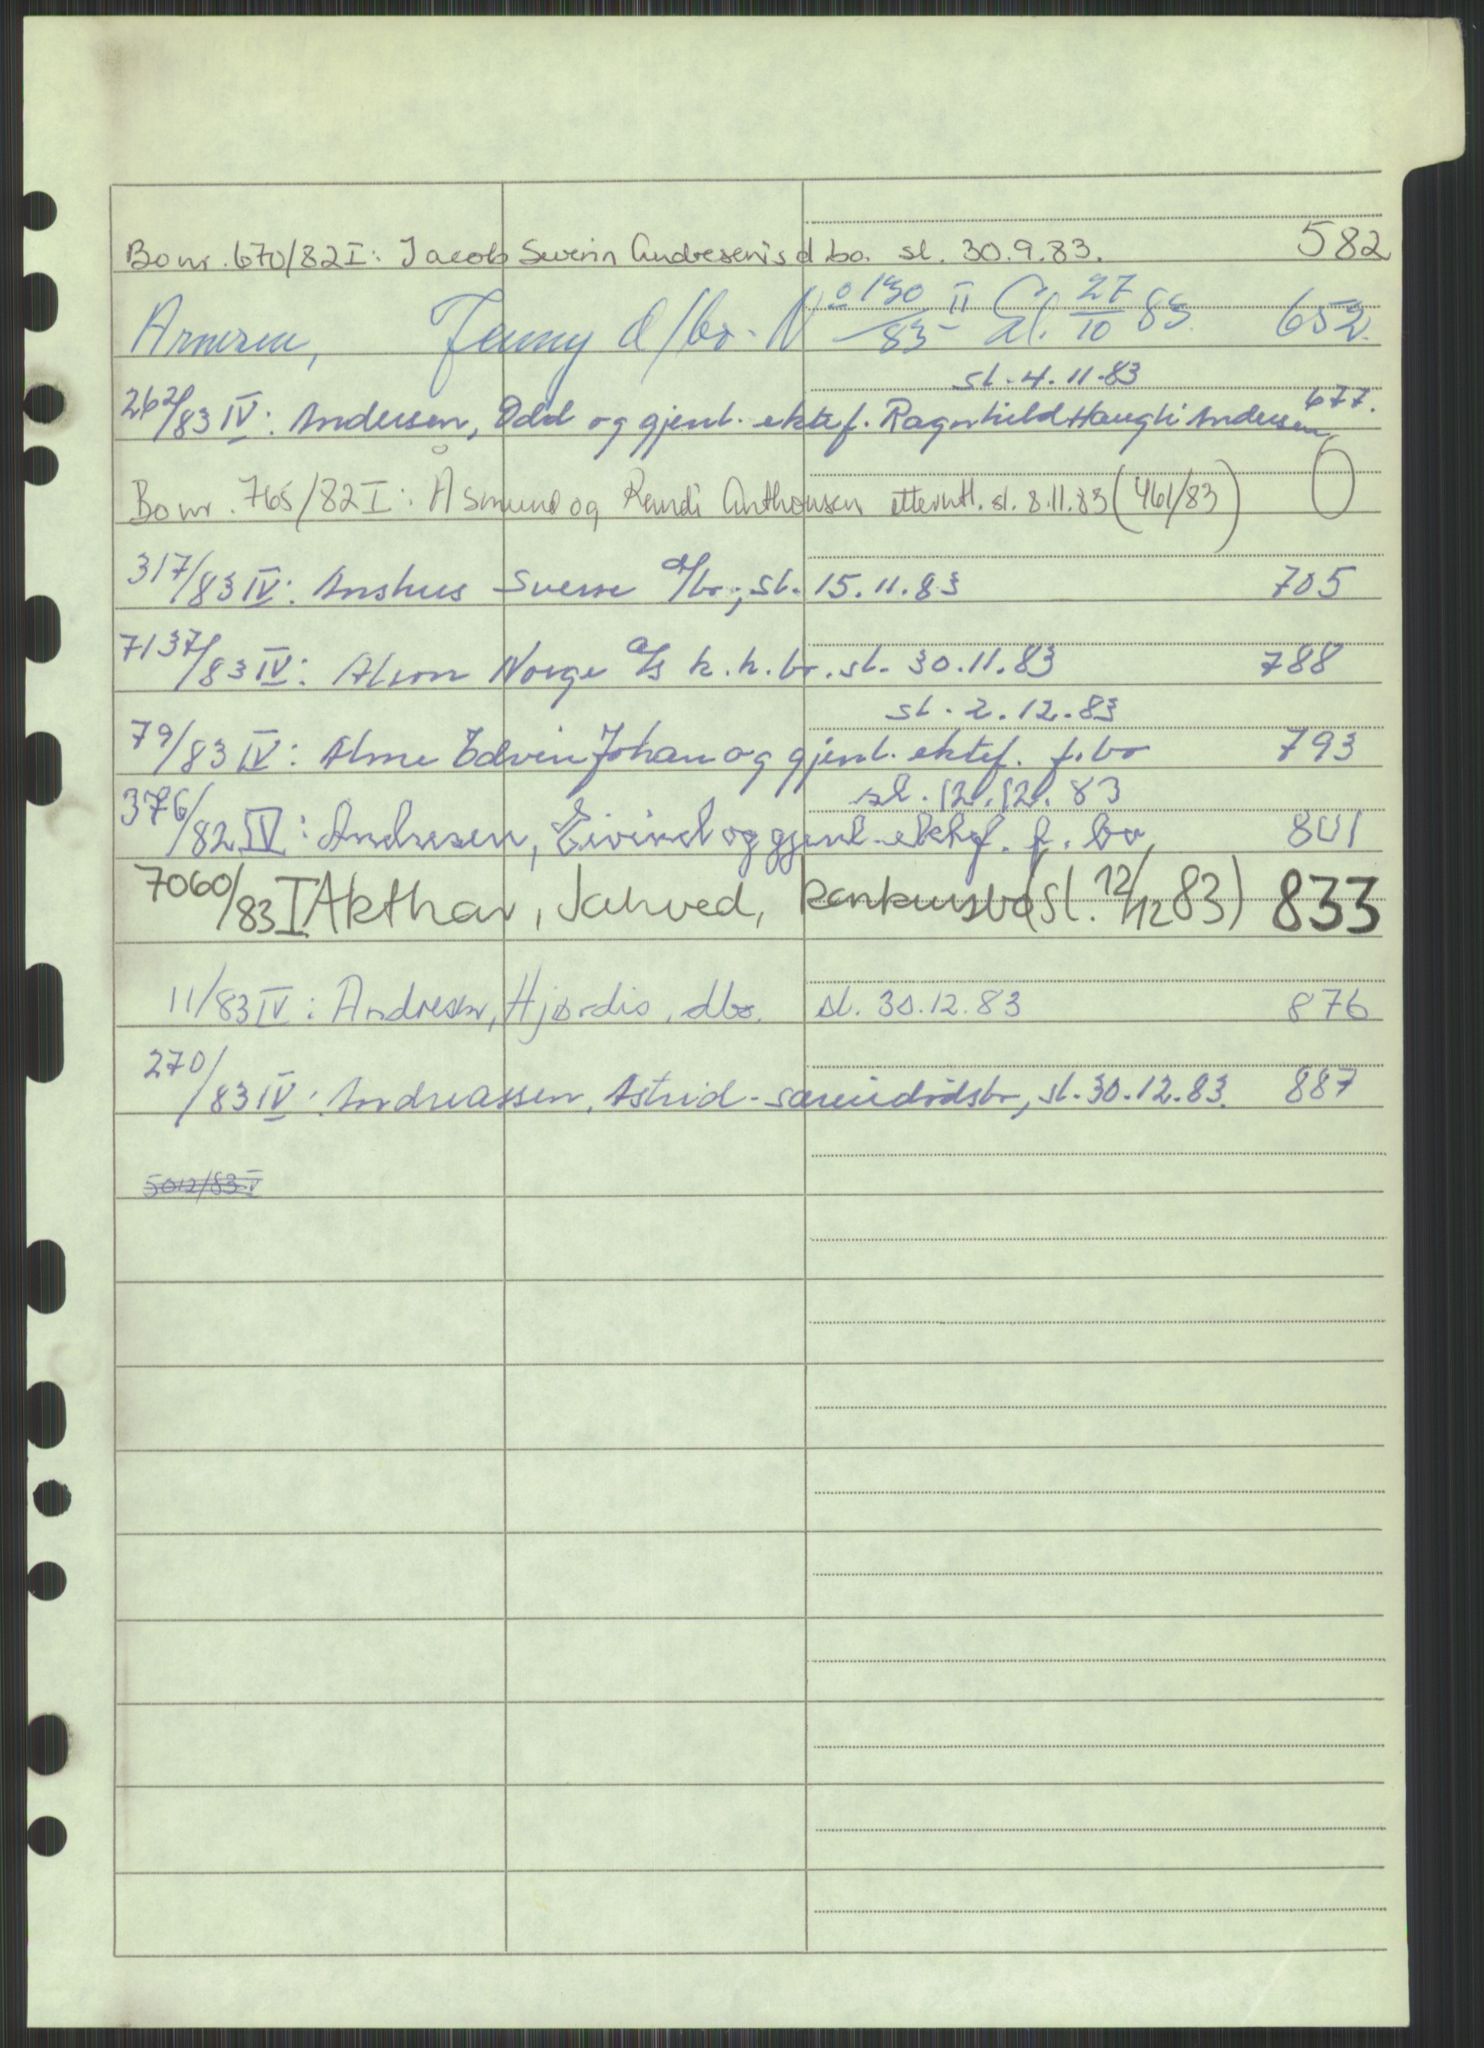 Bo nr. 670/82 I: Jacob Severin Andresen's d bo. sl. 30.9.83. 582
Arnesen, Jenny d/bo. No 130/83 II Sl. 27/10 83. 652
sl. 4.11.83
262/83 IV: Andersen, Odd og gjenl. ektef. Ragnhild Haugli Andersen 677.
Bo nr. 765/82 I: Åsmund og Randi Anthonsen etterutl. sl. 8.11.83 (461/83) 0
317/83 IV: Anshus Sverre d/bo, sl. 15.11.83 705
7137/83 IV: Norge a/s k.k.bo. sl. 30.11.83 788
sl. 2.12.83
79/83 IV: Alme Edvin Johan og gjenl. ektef. f.bo 793
sl. 12.12.83
376/82 IV: Andresen, Eivind og gjenl. ektef. f. bo 801
7060/83 I Akthar, Jahved, konkursbo (sl. 12/12 83) 833
11/83 IV: Andresen, Hjørdis, dbo. sl. 30.12.83 876
270/83 IV: Andreassen, Astrid - særeiedødsbo, sl. 30.12.83. 887
5012/83 V